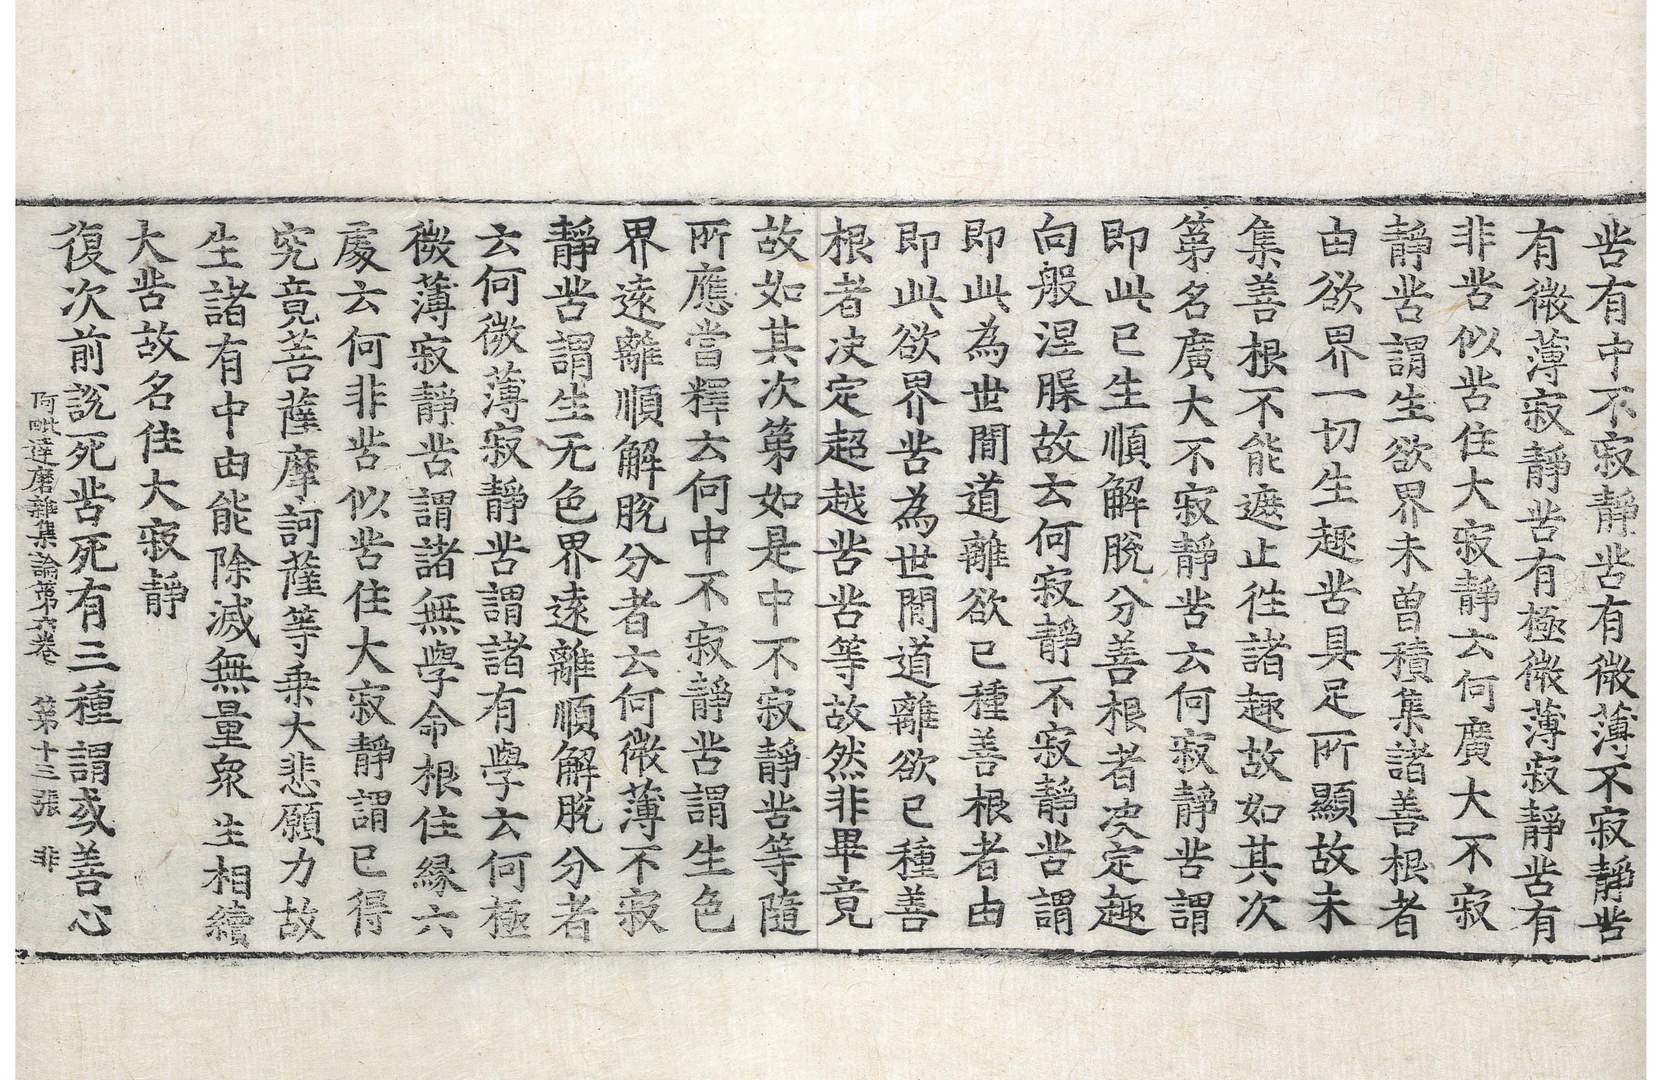 苦有中不寂靜苦有微薄不寂靜苦
有微薄寂靜苦有極微薄寂靜苦有
非苦似苦住大寂靜云何廣大不寂
靜苦謂生欲界未曾積集諸善根者
由欲界一切生趣苦具足所顯故未
集善根不能遮止往諸趣故如其次
第名廣大不寂靜苦云何寂靜苦謂
即此已生順解脫分善根者决定趣
向般涅槃故云何寂靜不寂靜苦謂
即此為世間道離欲已種善根者由
即此欲界苦為世間道離欲已種善
根者决定超越苦苦等故然非畢竟
故如其次第如是中不寂靜苦等隨
所應當釋云何中不寂靜苦謂生色
界遠離順解脫分者云何微薄不寂
靜苦謂生无色界遠離順解脫分者
云何微薄寂靜苦謂諸有學云何極
微薄寂靜苦謂諸無學命根住緣六
處云何非苦似苦住大寂靜謂已得
究竟菩薩摩訶薩等乘大悲願力故
生諸有中由能除滅無量衆生相續
大苦故名住大寂靜
復次前說死苦死有三種謂或善心
阿毗達磨雜集論第六卷　第十三張　非